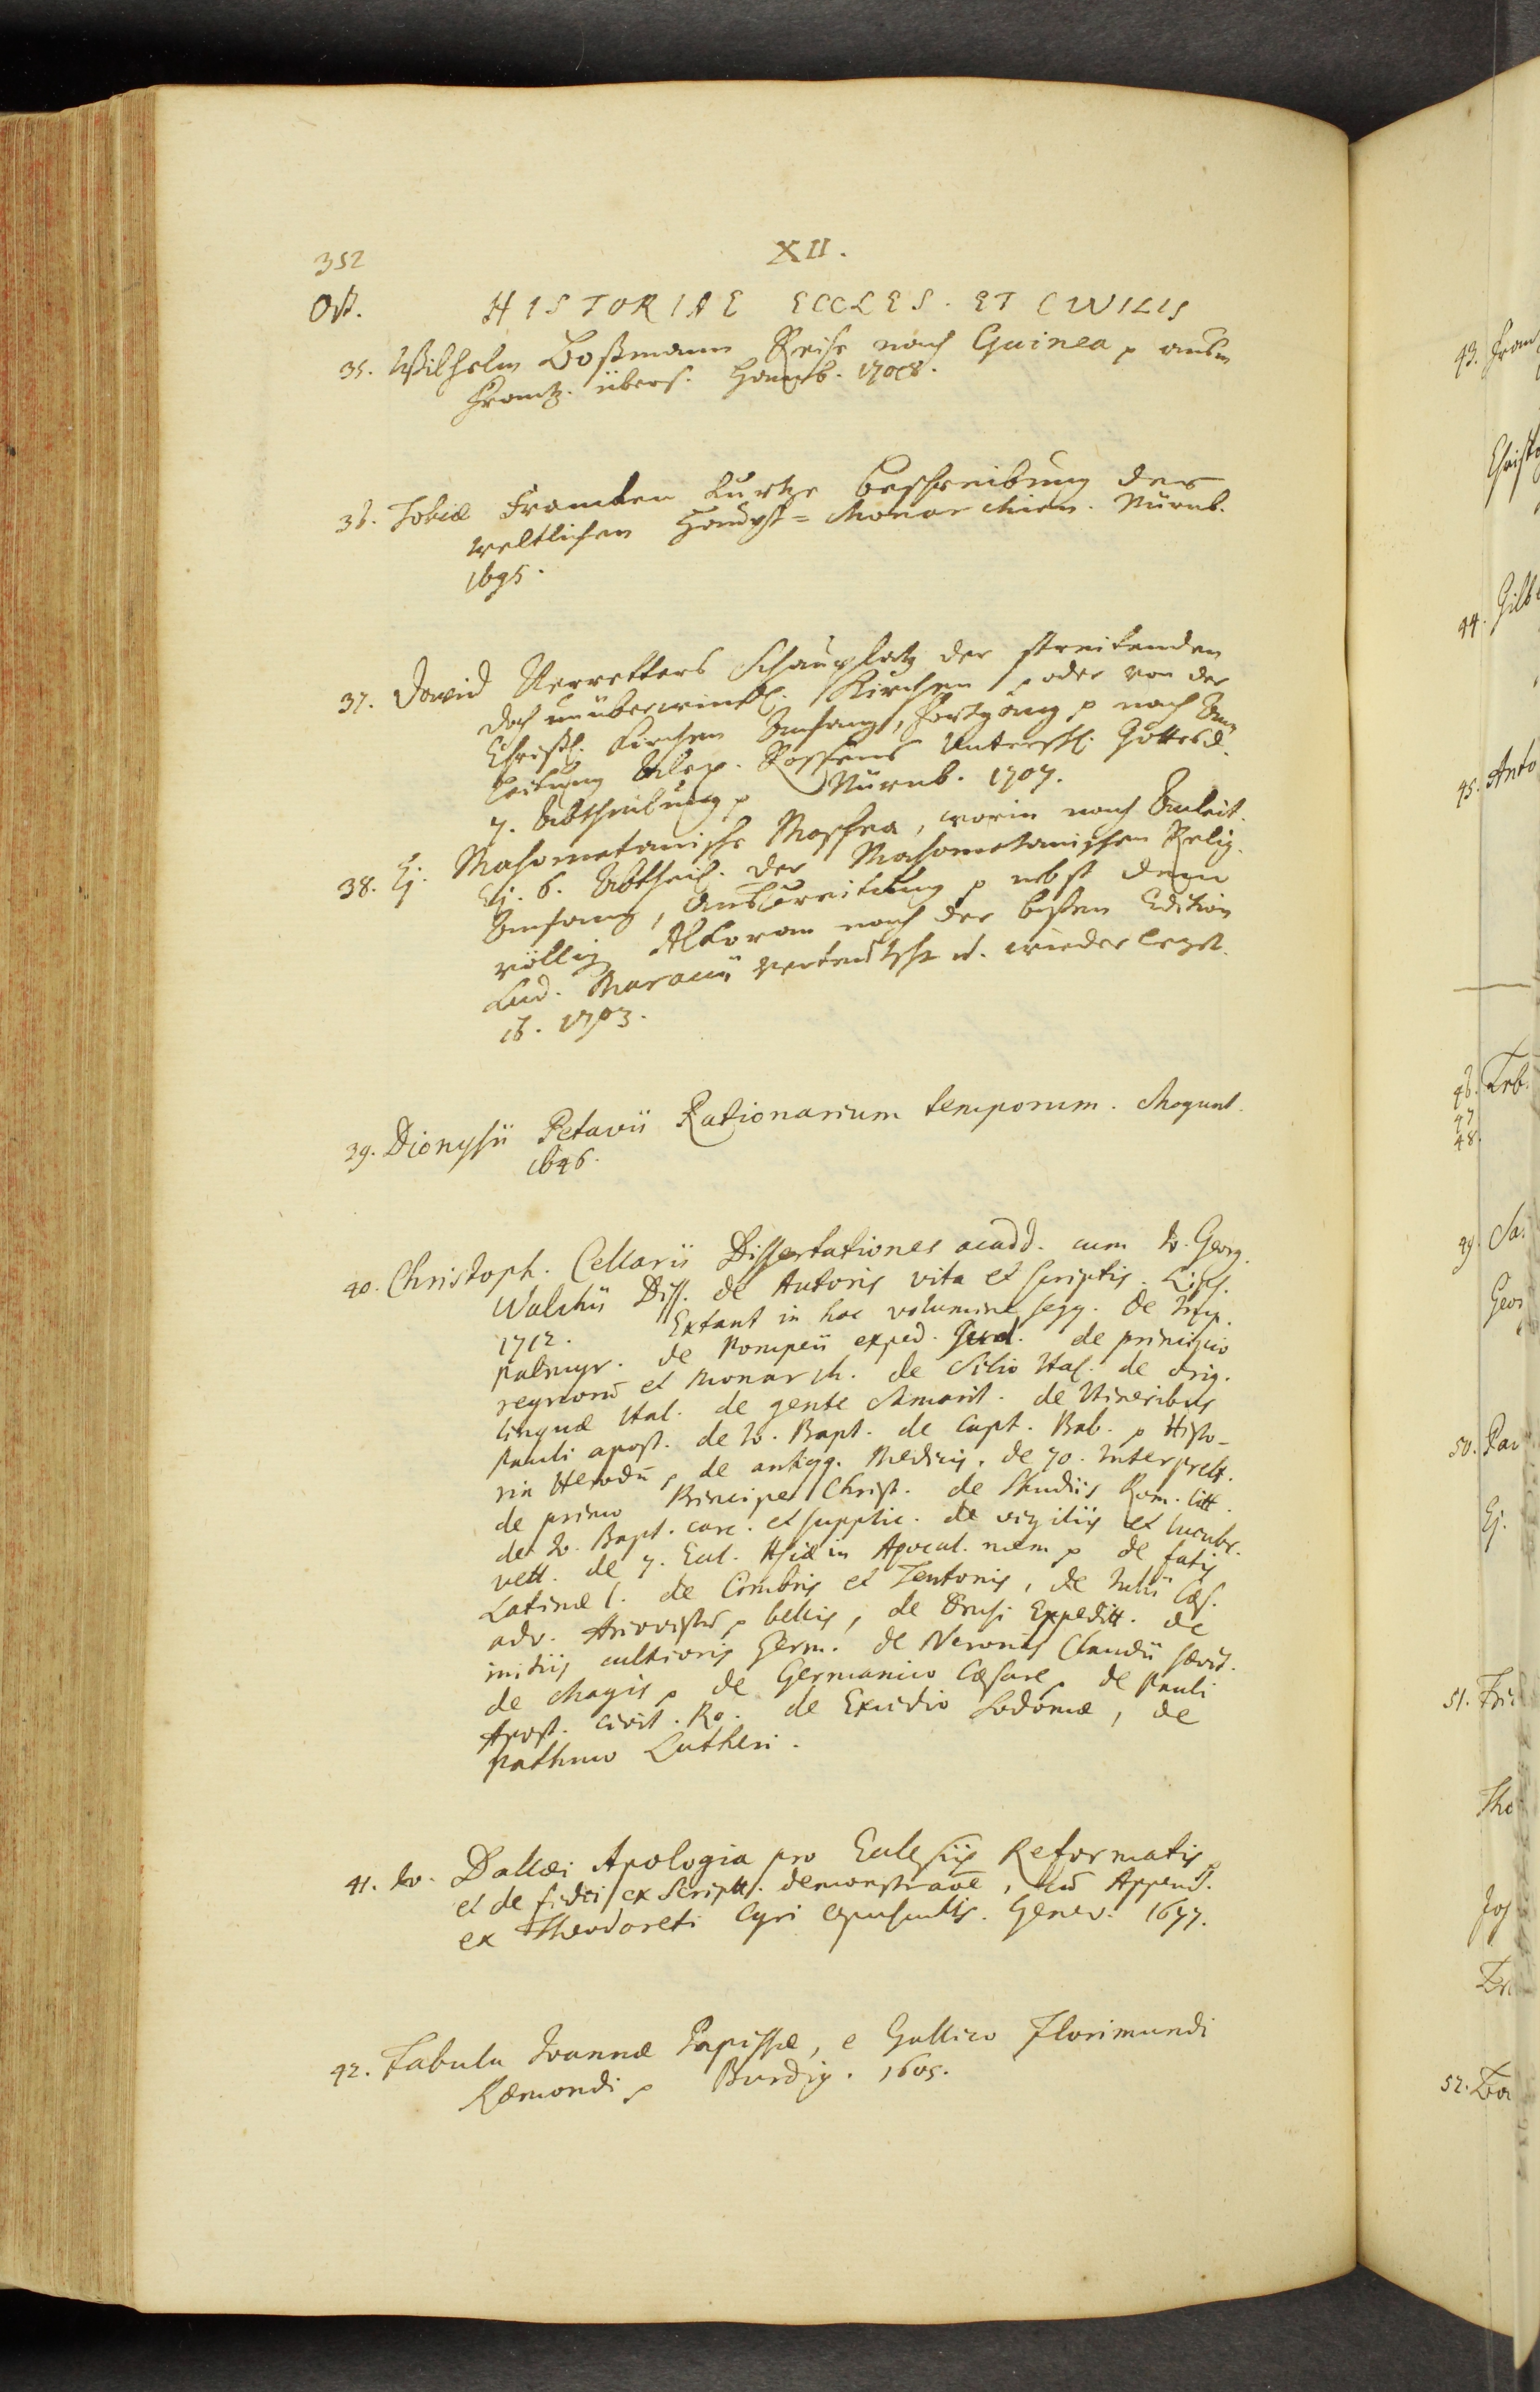 352
XII.
Oct. HISTORIAE ECCLES. ET CIVILIS
35. Wilhelm Boßmann Reise nach Guinea p ausm
Frantz. übers. Hamb. 1708.
36. Tobiæ Francken kurtze Beschreibung der
weltlichen Haupt=Monarchien. Nürnb.
1695.
37. David Nerretters Schauplatz der streitenden
doch unüberwindl. Kirchen p oder von der
Christl. Kirchen Anfang, Fortgang p nach An-
leitung Alex. Rossens Unterschl. Gottesd.
7. Abtheilung p Nürnb. 1707.
38. Ej. Mahometanische Moschea, worin nach Anleit.
Ej. 6. Abtheil. der Mahometanischen Relig.
Anfang, Ausbreitung p nebst dem
völlig Alkoran nach der besten Edition
Lud. Maracii verteutscht u. wiederlegt.
ib. 1703.
39. Dionysii Petavii Rationarium temporum. Mogunt.
1646.
40. Christoph. Cellarii Dissertationes acadd. cum Io. Georg.
Walchii Diss. de Autoris vita et scriptis. Lips.
1712. Extant in hoc volumine seqq. de Imp.
Palmyr. de Pompeii exped. Jud. de principio
regnorũ et Monarch. de Silio Ital. de orig.
linguæ Ital. de gente Samarit. de Itineribus
Pauli apost. de Io. Bapt. de Capt. Bab. p Histo-
ria Herodũ, de antiqq. Medicis. de 70. Interprett.
de primo Principe Christ. de Studiis Rom. litt.
de Io. Bapt. carc. et supplic. de vigiliis et lucubr.
vett. de 7. Eccl. Asiæ in Apocal. mem p de fatis
Latinæ l. de Cimbris et Teutonis, de Julii Cæs.
adv. Ariovistũ p bellis, de Drusi Expeditt. de
initiis cultioris Germ. de Neronis Claudii sævit.
de Magis p de Germanico Cæsare p de Pauli
Apost. civit. Ro. de Excidio Sodomæ, de
Pathmo Lutheri.
41. Io. Dallæi Apologia pro Ecclesiis Reformatis p
et de fidei ex Scriptt. demonstraõe, cũ Append.
ex Theodoreti Cyri opusculis. Genev. 1677.
42. Fabula Ioannæ Papissæ, e Gallico Florimundi
Ræmondi p Burdig. 1605.
43. Fran
Christo
44. Gilb
45. Anto
46. Feb.
47
48.
49. Sa.
Geor
50. Pau
Ej.
51. Frid
Tho
Jos
52.